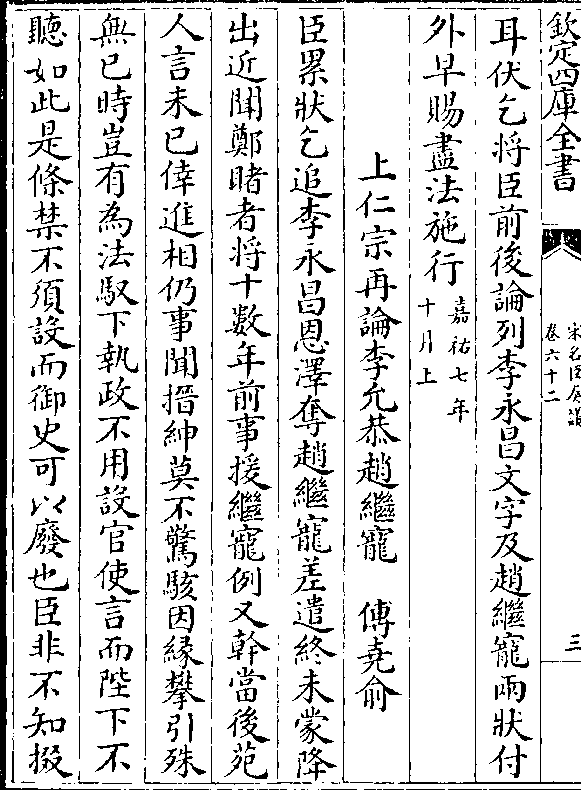 欽定四庫全書
宋名臣奏議
卷六十二
三
耳伏乞將臣前後論列李永昌文字及趙繼寵兩狀付
外早賜盡法施行嘉祐七年十月上
上仁宗再論李允恭趙繼寵 傅堯俞
臣累狀乞追李永昌恩澤奪趙繼寵差遣終未蒙降
出近聞鄭睹者將十數年前事援繼寵例又幹當後苑
人言未已倖進相仍事聞搢紳莫不驚駭因緣攀引殊
無已時豈有為法馭下執政不用設官使言而陛下不
聽如此是條禁不須設而御史可以廢也臣非不知掇